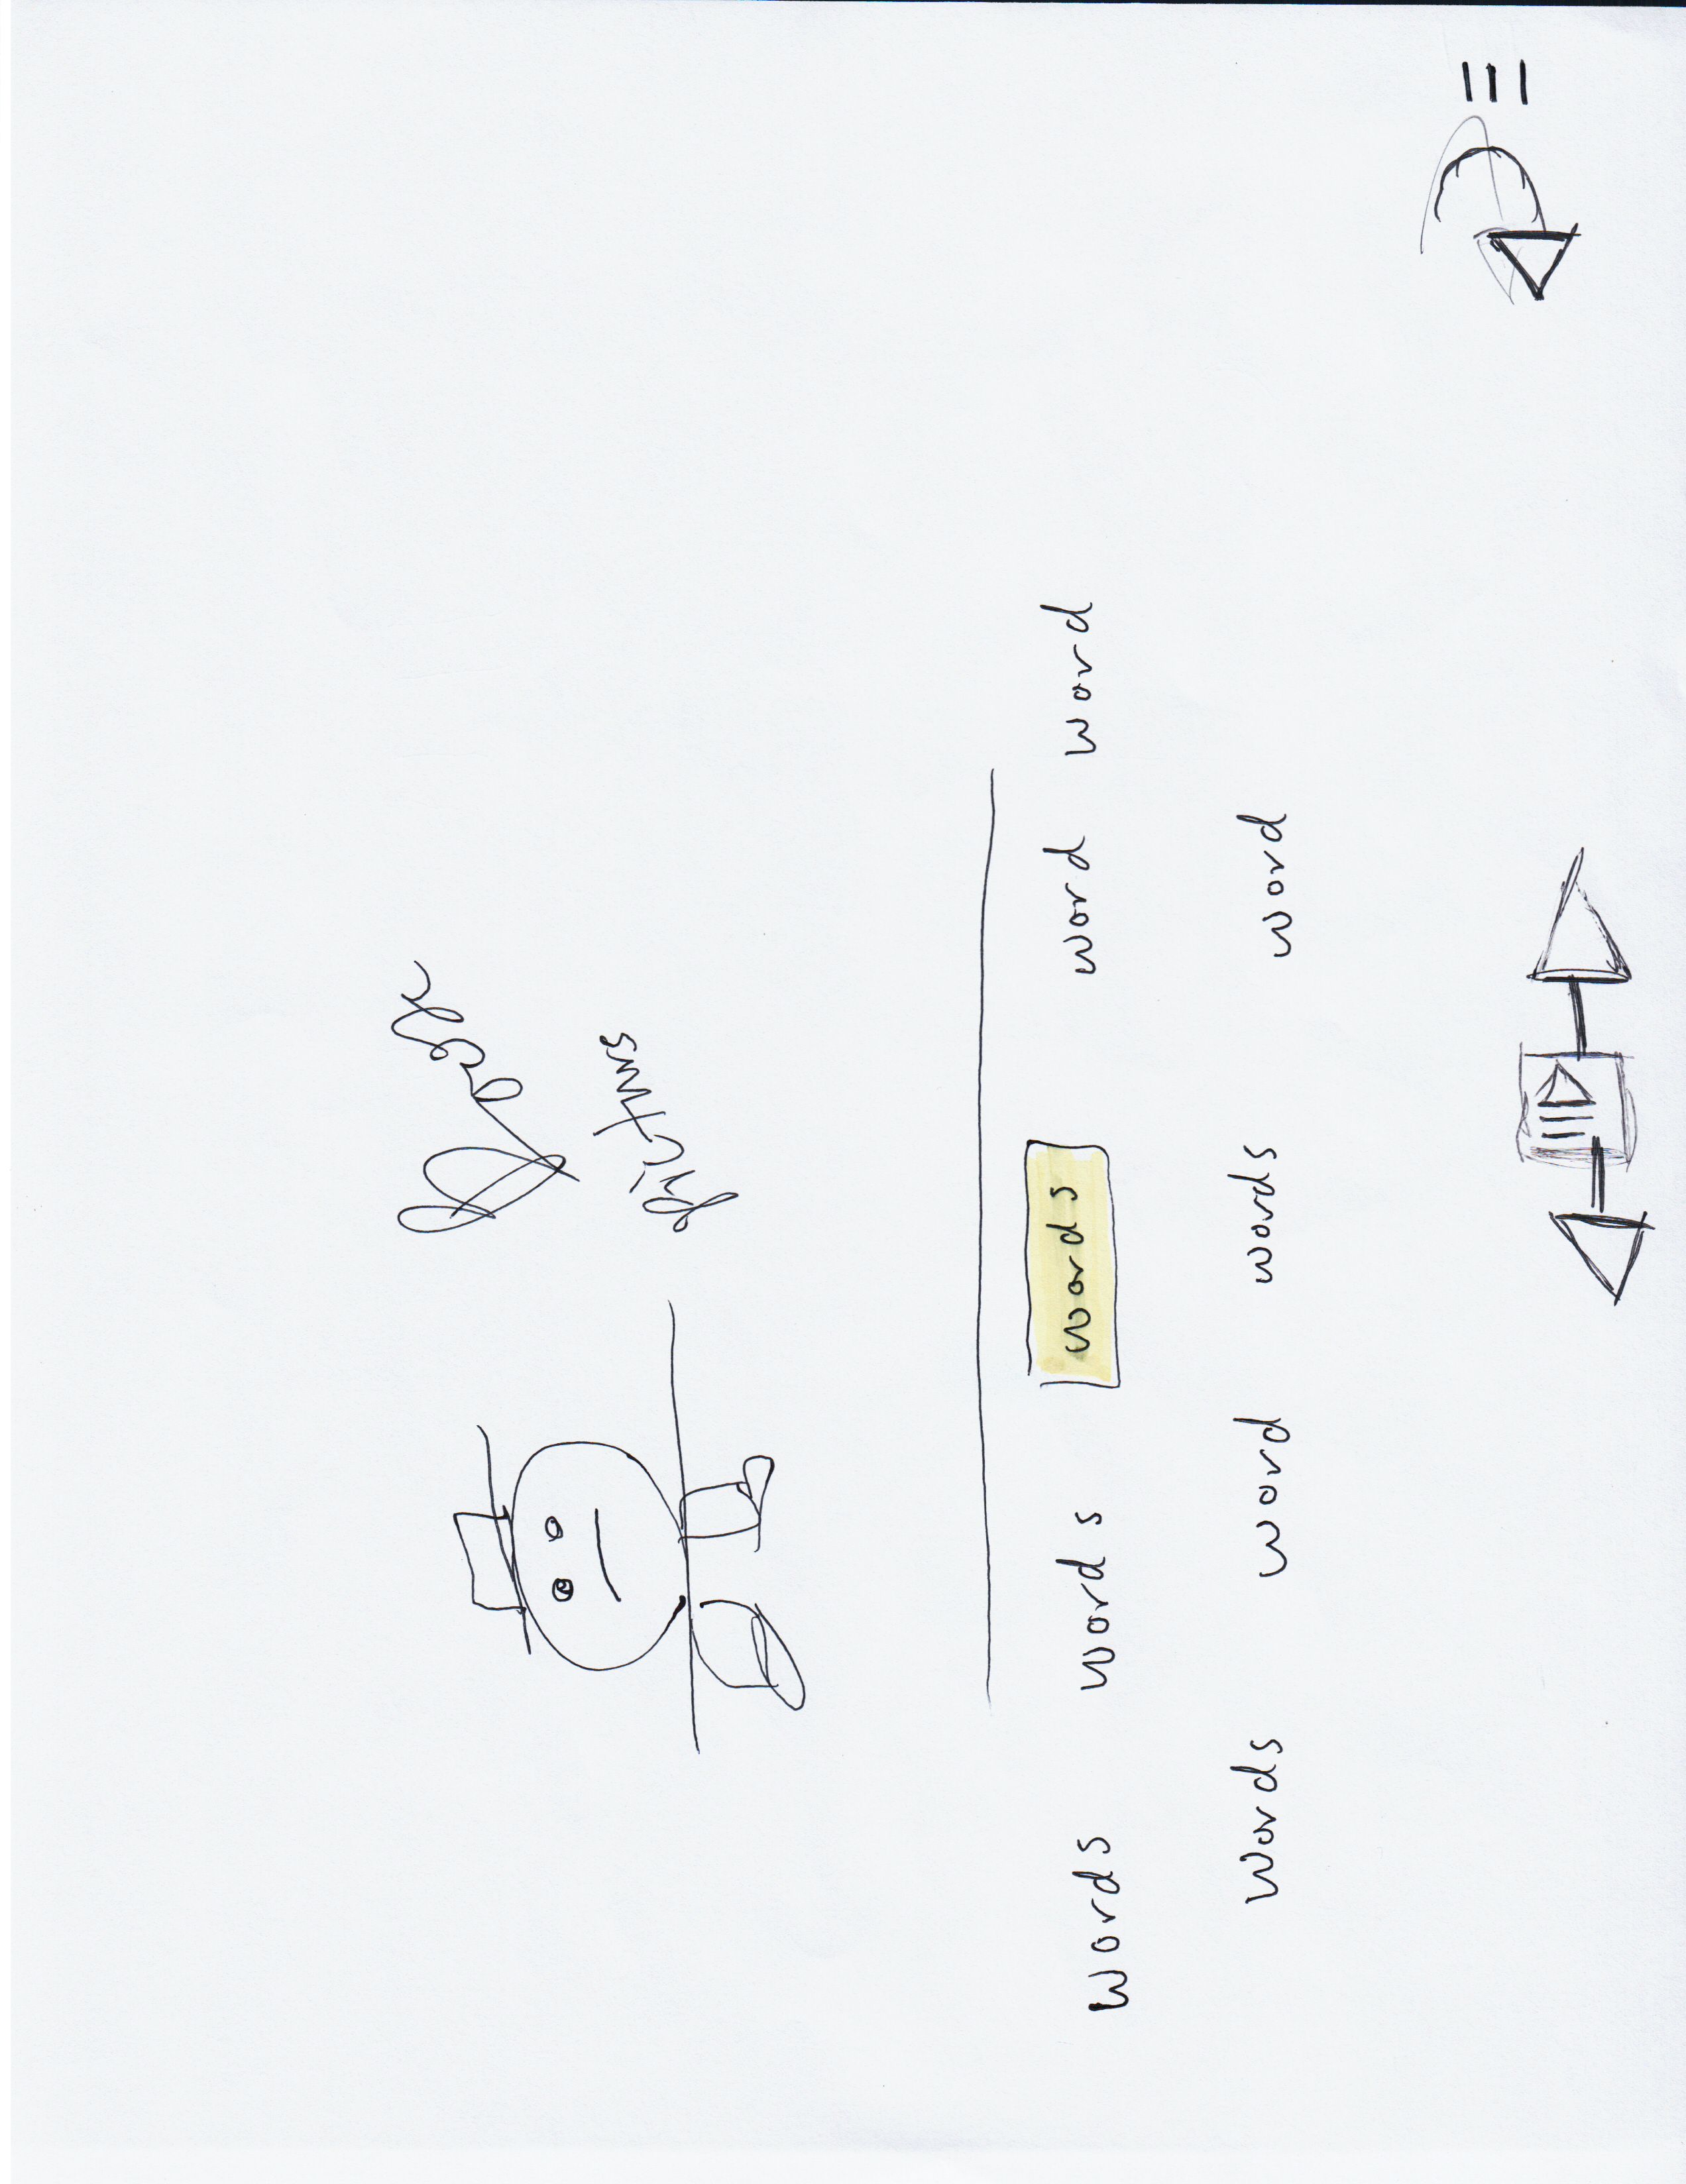 pictures
words words words word word
words word words word